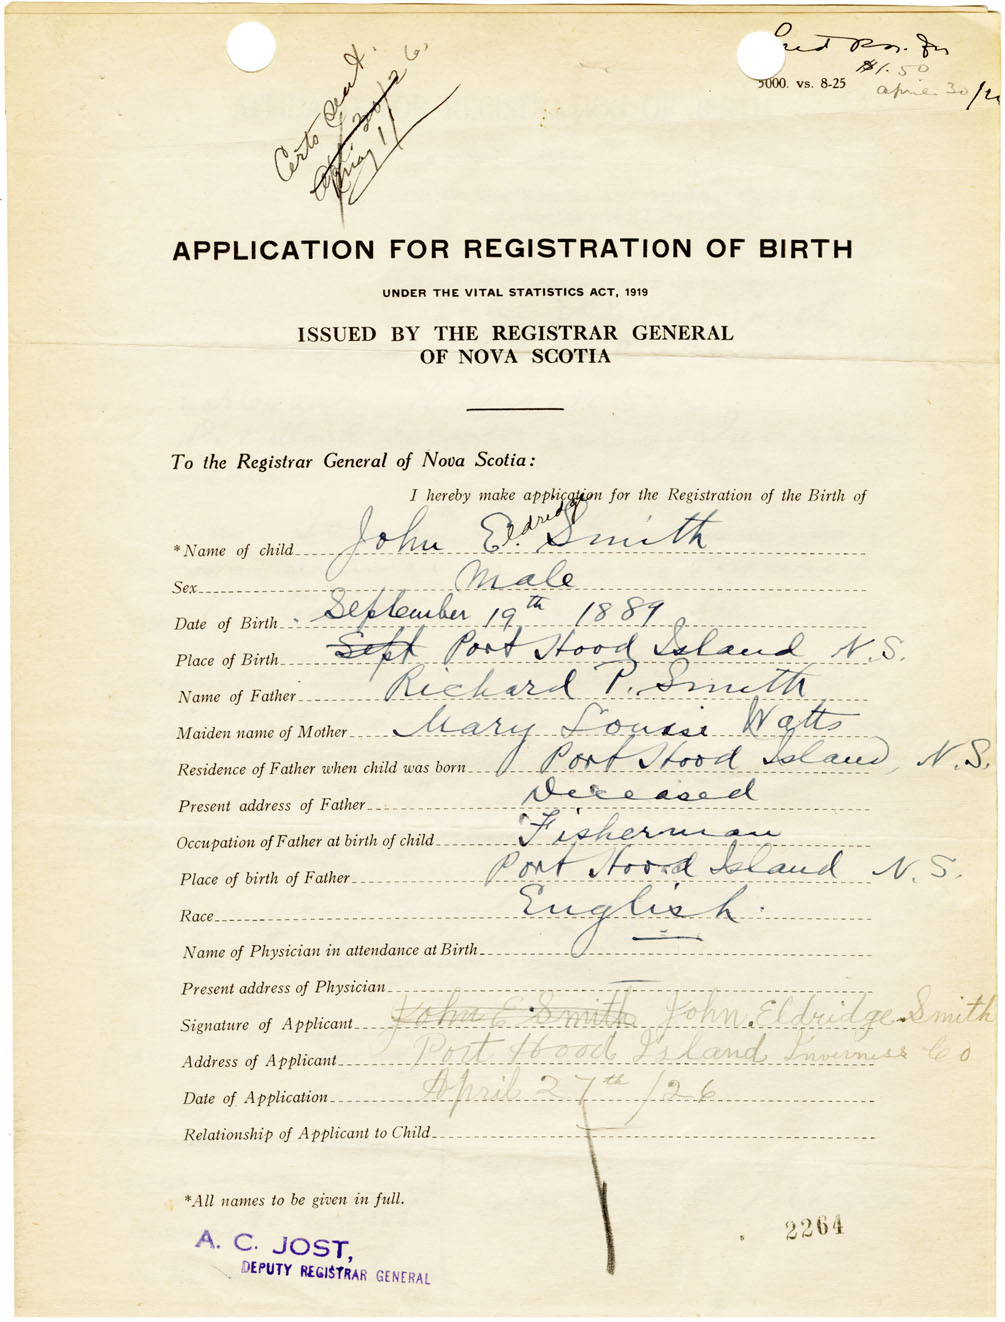 $1.50
5000. vs. 8-25
april 30/26
Certs sent.
May 11
APPLICATION FOR REGISTRATION OF BIRTH
UNDER THE VITAL STATISTICS ACT, 1919
ISSUED BY THE REGISTRAR GENERAL
OF NOVA SCOTIA
To the Registrar General of Nova Scotia:
I hereby make application for the Registration of the Birth of
*Name of child John Eldridge Smith
Sex Male
Date of Birth September 19th 1889
Place of Birth Sept Port Hood Island N.S.
Name of Father Richard P. Smith
Maiden name of Mother Mary Louise Watts
Residence of Father when child was born Port Hood Island, N.S.
Present address of Father Deceased
Occupation of Father at birth of child Fisherman
Place of birth of Father Port Hood Island N.S.
Race English.
Name of Physician in attendance at Birth
Present address of Physician
Signature of Applicant John E Smith John Eldridge Smith
Address of Applicant Port Hood Island Inverness Co
Date of Application April 27th/26
Relationship of Applicant to Child
*All names to be given in full.
2264
A. C. JOST,
DEPUTY REGISTRAR GENERAL